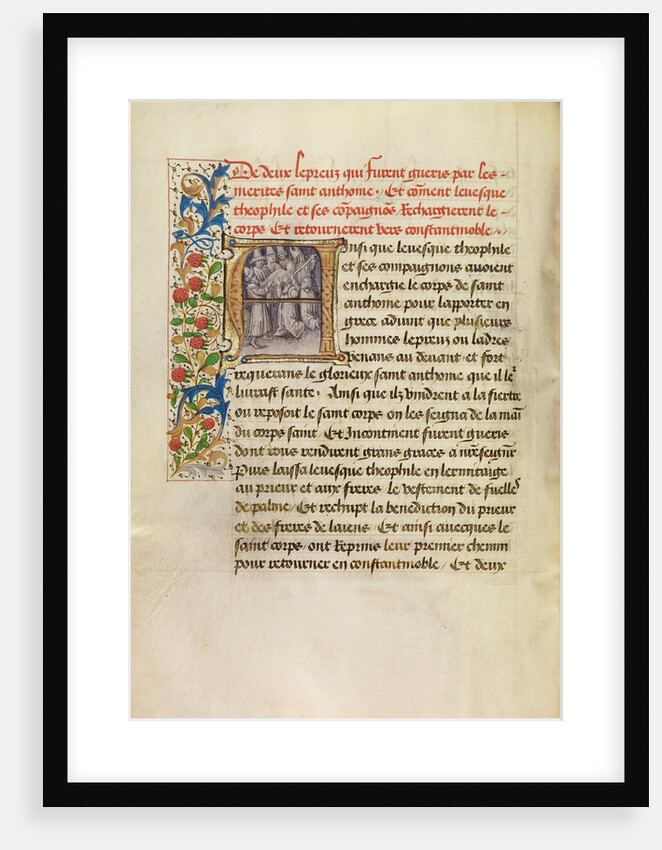 De deux lepreux qui furent gueris par les
merites saint anthoine. Et coment levesque
theophile et ses copaignos Rechargierent le
corps Et retournerent vers constantinoble.
Ainsi que levesque theophile
et ses compaignons avoient
enchargie le corps de saint
anthoine pour lapporter en
grece advint que plusieurs
hommes lepreux ou ladres
venans au devant et fort
requerans le glorieux saint anthoine que il le
livrast sante. Ainsi que ilz vindrent a la fiertre
ou reposoit le saint corps on les seigna de la mai
du corps saint / Et Incontinent furent gueris
dont tous rendirent grans graces a nre seignr
Puis laissa levesque theophile en lermitaige
au prieur et aux freres le vestement de fuelles
de palme / Et rechupt la benediction du prieur
et des freres de laiens / Et ainsi avecques le
saint corps / ont Reprins leur premier chemin
pour retourner en constantinoble / Et deux